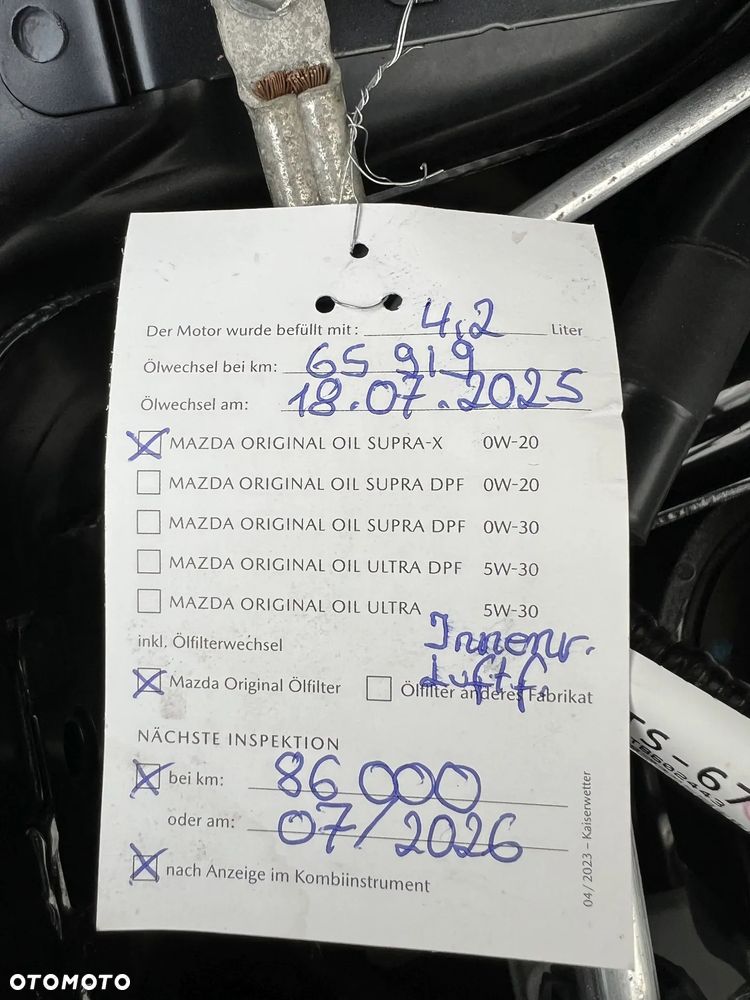 Der Motor wurde befüllt mit: 4,2 Liter
Ölwechsel bei km: 65 919
Ölwechsel am: 18.07.2025
MAZDA ORIGINAL OIL SUPRA-X 0W-20
MAZDA ORIGINAL OIL SUPRA DPF 0W-20
MAZDA ORIGINAL OIL SUPRA DPF 0W-30
MAZDA ORIGINAL OIL ULTRA DPF 5W-30
MAZDA ORIGINAL OIL ULTRA 5W-30
inkl. Ölfilterwechsel
Innenr.
Luftf.
Mazda Original Ölfilter Ölfilter anderes Fabrikat
NÄCHSTE INSPEKTION
bei km: 86 000
oder am: 07/2026
nach Anzeige im Kombiinstrument
04/2023 – Kaiserwetter
OTOMOTO